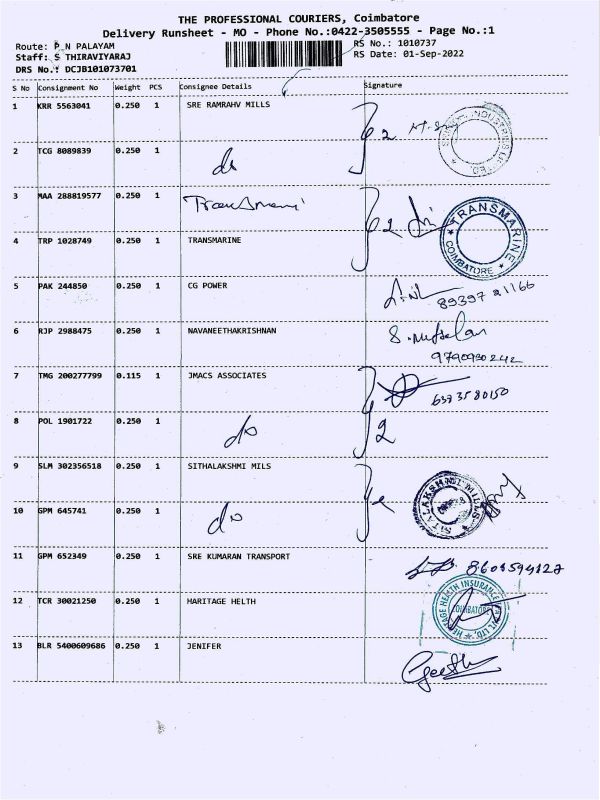 THE PROFESSIONAL COURIERS, Coimbatore
Delivery Runsheet - MO - Phone No.:0422-3505555 - Page No.:1
Route: P N PALAYAM
RS No.: 1010737
Staff: S THIRAVIYARAJ
RS Date: 01-Sep-2022
DRS No.: DCJB101073701
S No Consignment No Weight PCS Consignee Details Signature
1 KRR 5563041 0.250 1 SRE RAMRAHV MILLS
2 TCG 8089839 0.250 1 do
3 MAA 288819577 0.250 1
TRANSMARINE
COIMBATORE
4 TRP 1028749 0.250 1 TRANSMARINE
5 PAK 244850 0.250 1 CG POWER
89397 21166
6 RJP 2988475 0.250 1 NAVANEETHAKRISHNAN
9790930242
7 TMG 200277799 0.115 1 JMACS ASSOCIATES
6373580150
8 POL 1901722 0.250 1 do
9 SLM 302356518 0.250 1 SITHALAKSHMI MILS
10 GPM 645741 0.250 1 do
11 GPM 652349 0.250 1 SRE KUMARAN TRANSPORT
12 TCR 30021250 0.250 1 MARITAGE HELTH
HERITAGE HEALTH INSURANCE
COIMBATORE
13 BLR 5400609686 0.250 1 JENIFER